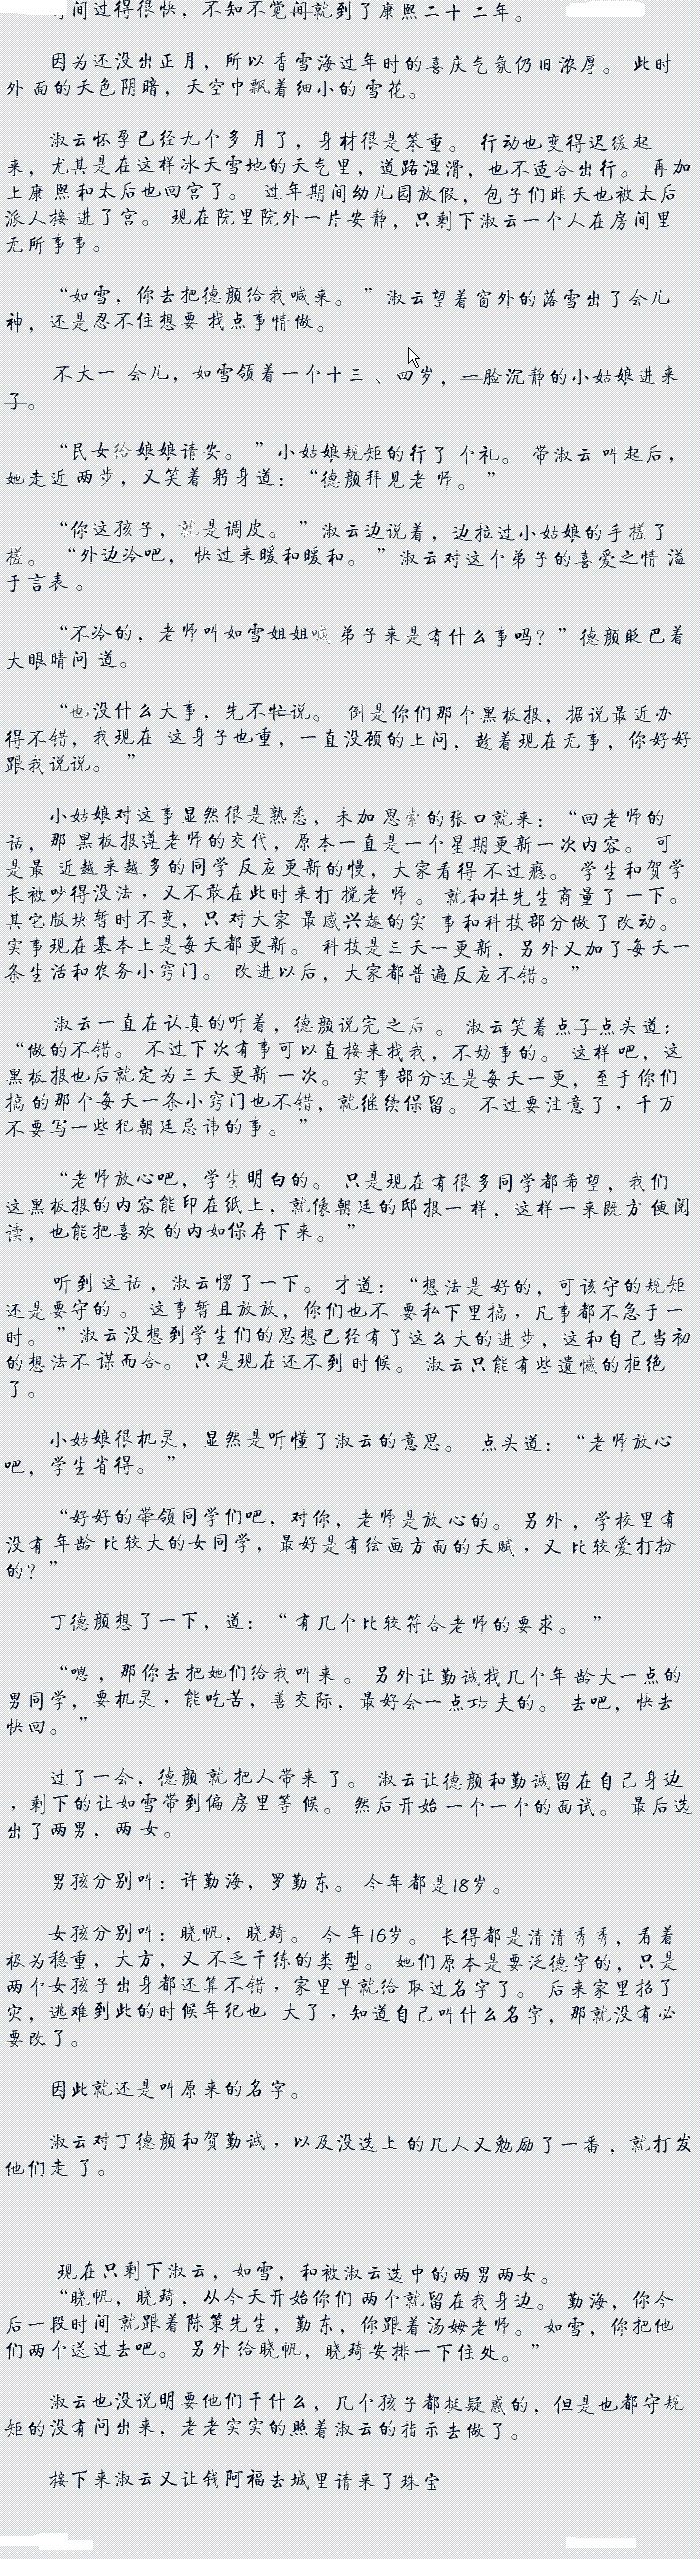 间过得很快，不知不觉间就到了康熙二十二年。
因为还没出正月，所以香雪海过年时的喜庆气氛仍旧浓厚。 此时
外面的天色阴暗，天空中飘着细小的雪花。
淑云怀孕已经九个多月了，身材很是笨重。 行动也变得迟缓起
来，尤其是在这样冰天雪地的天气里，道路湿滑，也不适合出行。 再加
上康熙和太后也回宫了。 过年期间幼儿园放假，包子们昨天也被太后
派人接进了宫。 现在院里院外一片安静，只剩下淑云一个人在房间里
无所事事。
“如雪，你去把德颜给我喊来。 ”淑云望着窗外的落雪出了会儿
神，还是忍不住想要找点事情做。
不大一会儿，如雪领着一个十三、四岁，一脸沉静的小姑娘进来
子。
“民女给娘娘请安。 ”小姑娘规矩的行了个礼。 带淑云叫起后，
她走近两步，又笑着躬身道：“德颜拜见老师。 ”
“你这孩子，就是调皮。 ”淑云边说着，边拉过小姑娘的手搓了
搓。 “外边冷吧，快过来暖和暖和。 ”淑云对这个弟子的喜爱之情溢
于言表。
“不冷的，老师叫如雪姐姐喊弟子来是有什么事吗？”德颜眨巴着
大眼睛问道。
“也没什么大事，先不忙说。 倒是你们那个黑板报，据说最近办
得不错，我现在这身子也重，一直没顾的上问，趁着现在无事，你好好
跟我说说。 ”
小姑娘对这事显然很是熟悉，未加思索的张口就来：“回老师的
话，那黑板报遵老师的交代，原本一直是一个星期更新一次内容。 可
是最近越来越多的同学反应更新的慢，大家看得不过瘾。 学生和贺学
长被吵得没法，又不敢在此时来打搅老师。 就和杜先生商量了一下。
其它版块暂时不变，只对大家最感兴趣的实事和科技部分做了改动。
实事现在基本上是每天都更新。 科技是三天一更新，另外又加了每天一
条生活和农务小窍门。 改进以后，大家都普遍反应不错。 ”
淑云一直在认真的听着，德颜说完之后。 淑云笑着点子点头道：
“做的不错。 不过下次有事可以直接来找我，不妨事的。 这样吧，这
黑板报也后就定为三天更新一次。 实事部分还是每天一更，至于你们
搞的那个每天一条小窍门也不错，就继续保留。 不过要注意了，千万
不要写一些犯朝廷忌讳的事。 ”
“老师放心吧，学生明白的。 只是现在有很多同学都希望，我们
这黑板报的内容能印在纸上，就像朝廷的邸报一样，这样一来既方便阅
读，也能把喜欢的内如保存下来。 ”
听到这话，淑云愣了一下。 才道：“想法是好的，可该守的规矩
还是要守的。 这事暂且放放，你们也不要私下里搞，凡事都不急于一
时。 ”淑云没想到学生们的思想已经有了这么大的进步，这和自己当初
的想法不谋而合。 只是现在还不到时候。 淑云只能有些遗憾的拒绝
了。
小姑娘很机灵，显然是听懂了淑云的意思。 点头道：“老师放心
吧，学生省得。 ”
“好好的带领同学们吧，对你，老师是放心的。 另外，学校里有
没有年龄比较大的女同学，最好是有绘画方面的天赋，又比较爱打扮
的？”
丁德颜想了一下，道：“有几个比较符合老师的要求。 ”
“嗯，那你去把她们给我叫来。 另外让勤诚找几个年龄大一点的
男同学，要机灵，能吃苦，善交际，最好会一点功夫的。 去吧，快去
快回。 ”
过了一会，德颜就把人带来了。 淑云让德颜和勤诚留在自己身边
，剩下的让如雪带到偏房里等候。 然后开始一个一个的面试。 最后选
出了两男，两女。
男孩分别叫：许勤海，罗勤东。 今年都是18岁。
女孩分别叫：晓帆，晓琦。 今年16岁。 长得都是清清秀秀，看着
极为稳重，大方，又不乏干练的类型。 她们原本是要泛德字的，只是
两个女孩子出身都还算不错，家里早就给取过名字了。 后来家里招了
灾，逃难到此的时候年纪也大了，知道自己叫什么名字，那就没有必
要改了。
因此就还是叫原来的名字。
淑云对丁德颜和贺勤诚，以及没选上的几人又勉励了一番，就打发
他们走了。
现在只剩下淑云，如雪，和被淑云选中的两男两女。
“晓帆，晓琦，从今天开始你们两个就留在我身边。 勤海，你今
后一段时间就跟着陈策先生，勤东，你跟着汤姆老师。 如雪，你把他
们两个送过去吧。 另外给晓帆，晓琦安排一下住处。 ”
淑云也没说明要他们干什么，几个孩子都挺疑惑的，但是也都守规
矩的没有问出来，老老实实的照着淑云的指示去做了。
接下来淑云又让钱阿福去城里请来了珠宝